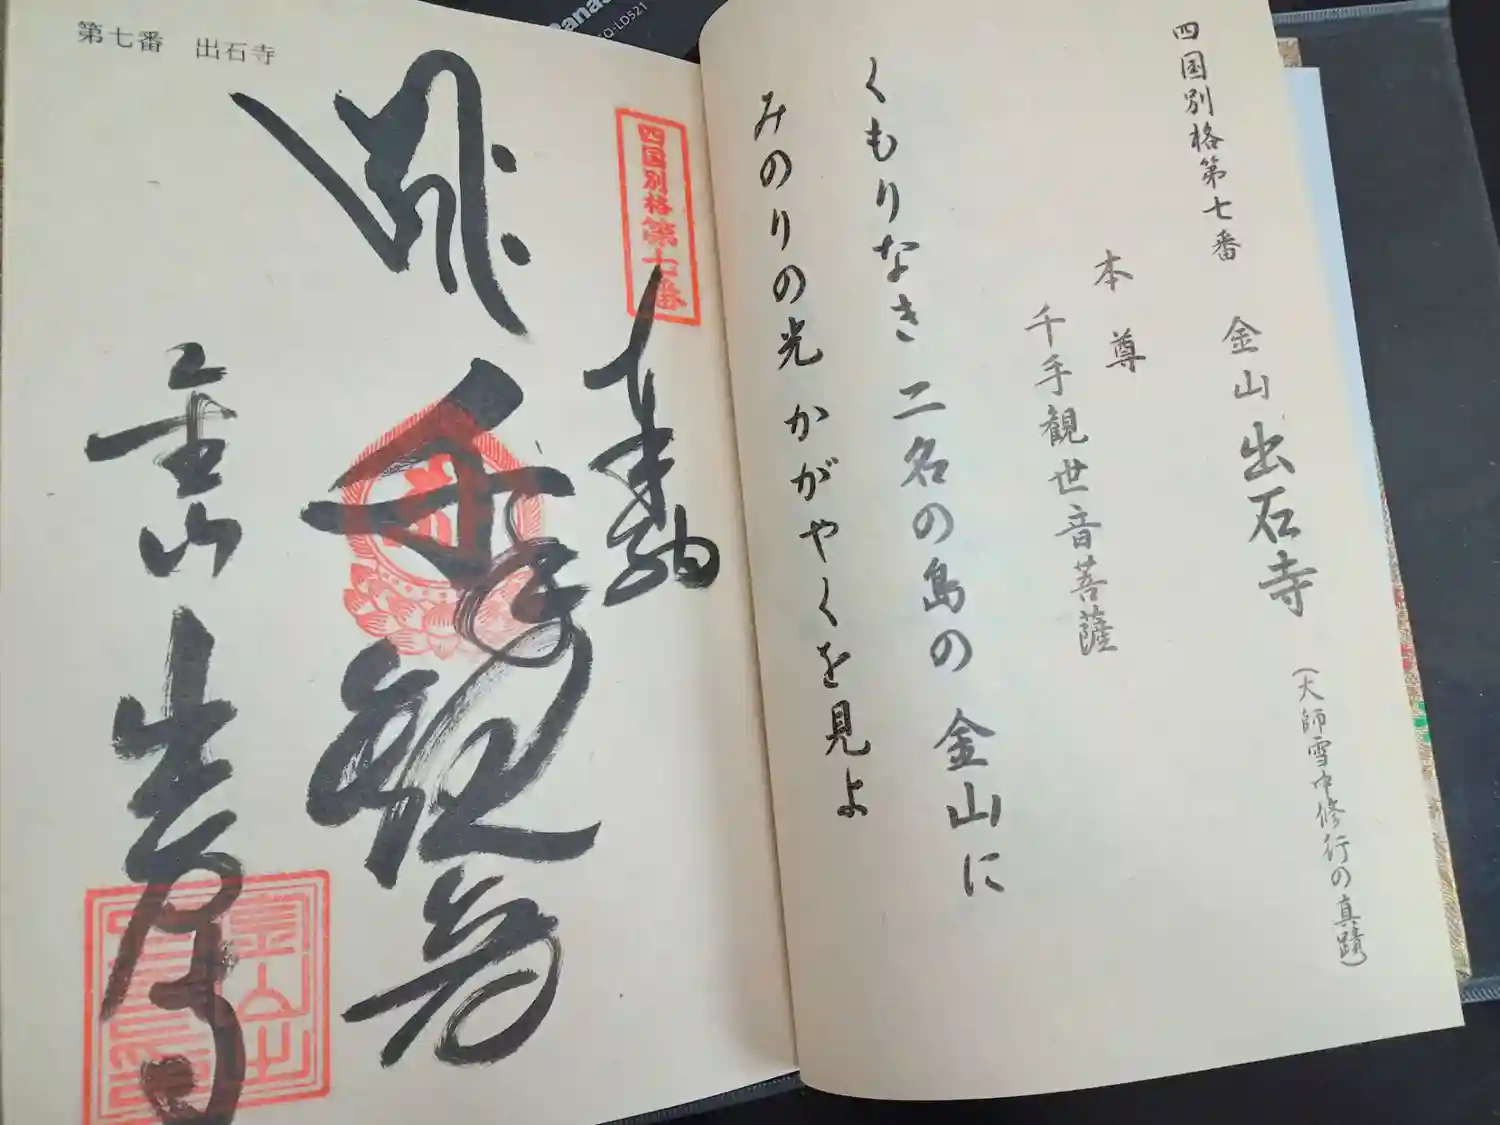 四国別格第七番 金山 出石寺 (大師雪中修行の真蹟)
本尊
千手観世音菩薩
くもりなき 二名の島の 金山に
みのりの光 かがやくを見よ
第七番 出石寺
四国別格第七番
奉納
千手観音
金山 出石寺
Panas
CQ-LD521